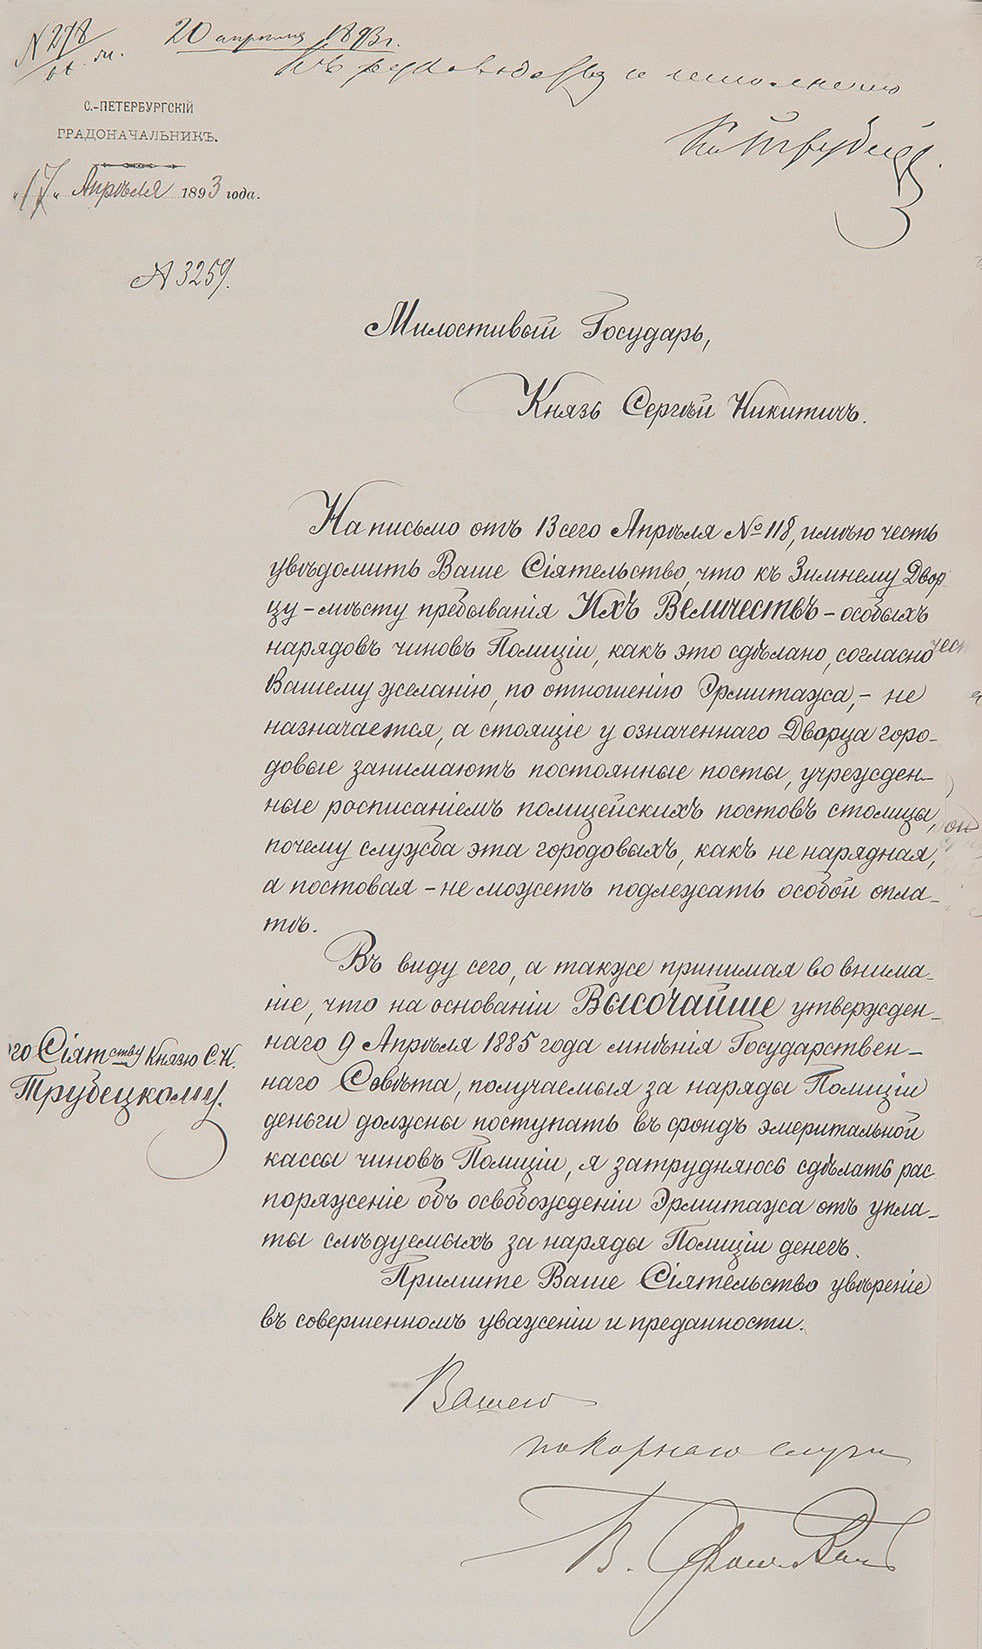 N 278
20 апреля 1893 г.
Къ руководству и исполнению
Кн Трубецкой
С.-ПЕТЕРБУРГСКІЙ
ГРАДОНАЧАЛЬНИКЪ.
„17" Апрѣля 1893 года.
№ 3259.
Милостивый Государь,
Князь Сергѣй Никитичъ.
На письмо отъ 13 сего Апрѣля № 118, имѣю честь
увѣдомить Ваше Сіятельство, что къ Зимнему Двор
цу – мѣсту пребыванія Ихъ Величествъ – особыхъ
нарядовъ чиновъ Полиціи, какъ это сдѣлано, согласно
Вашему желанію, по отношенію Эрмитажа, – не
назначается, а стоящіе у означеннаго Дворца горо–
довые занимаютъ постоянные посты, учрежден–
ные росписаніемъ полицейскихъ постовъ столицы,
почему служба эта городовыхъ, какъ не нарядная,
а постовая – не можетъ подлежать особой опла–
тѣ.
Въ виду сего, а также принимая во внима–
ніе, что на основаніи Высочайше утвержден–
наго 9 Апрѣля 1885 года мнѣнія Государствен–
наго Совѣта, получаемыя за наряды Полиціи
деньги должны поступать въ фондъ эмеритальной
кассы чиновъ Полиціи, я затрудняюсь сдѣлать рас
поряженіе объ освобожденіи Эрмитажа отъ упла–
ты слѣдуемыхъ за наряды Полиціи денегъ.
Примите Ваше Сіятельство увѣреніе
въ совершенномъ уваженіи и преданности.
Вашего
покорнаго слуги
В.
го Сіятству Князю С. Н.
Трубецкому.